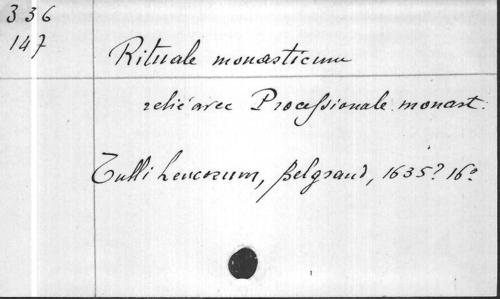 336
147
Rituale monasticum
relié avec Processionale monast.
Tulli Leucorum, Belgrand, 1635? 16º